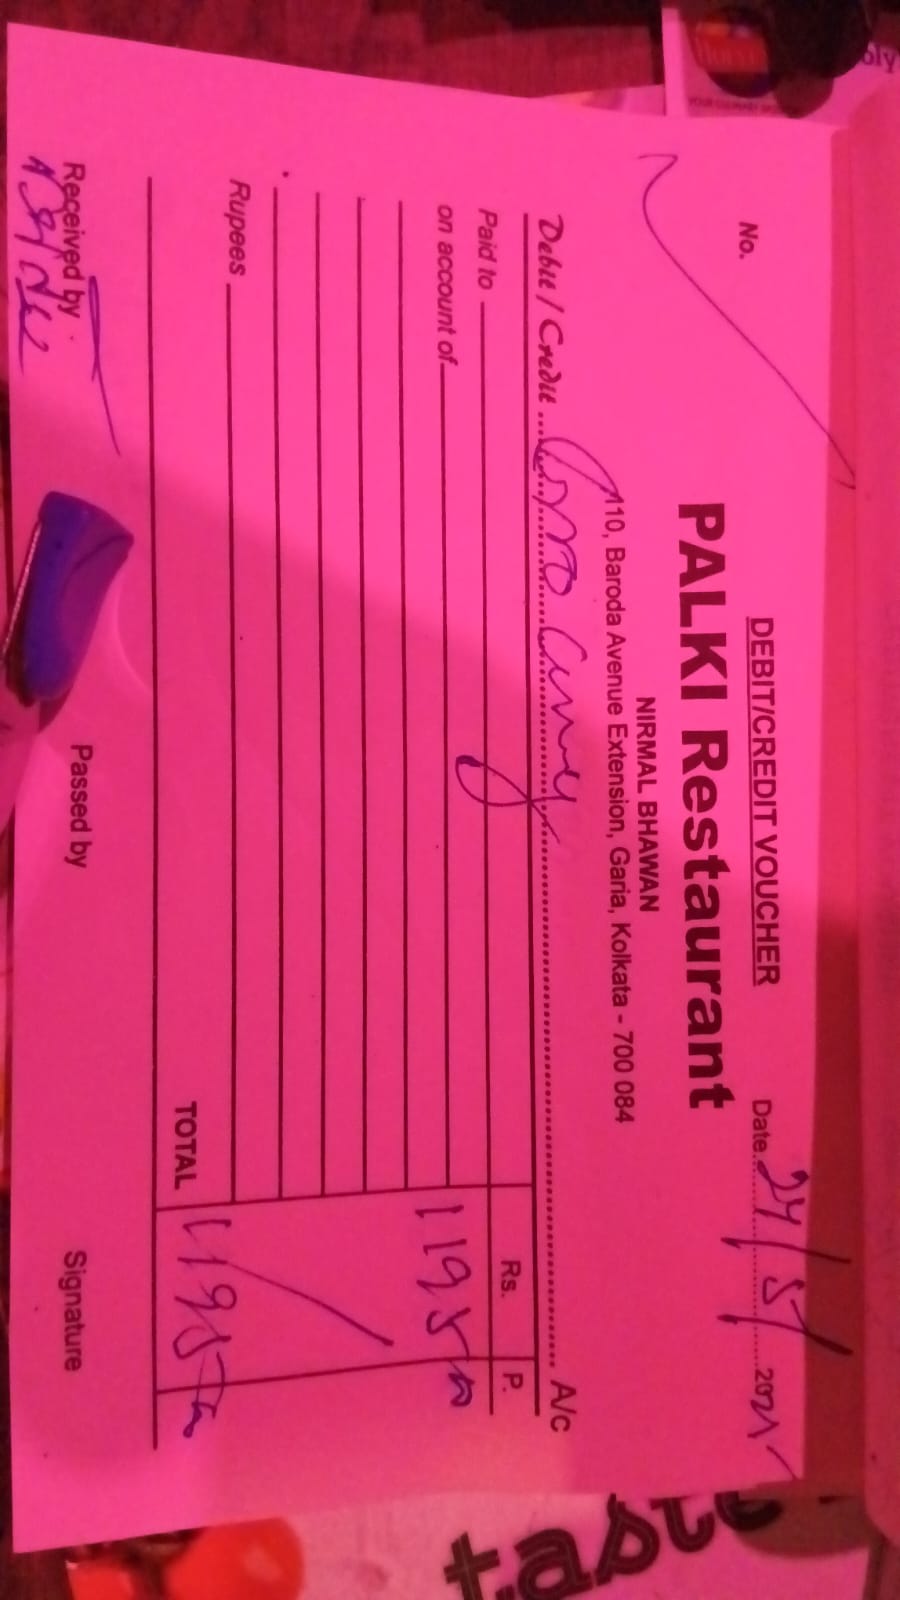 DEBIT/CREDIT VOUCHER
No.
Date 24/5/2025
PALKI Restaurant
NIRMAL BHAWAN
110, Baroda Avenue Extension, Garia, Kolkata - 700 084
Debit / Credit A/c
Rs. P.
Paid to
on account of 1195
Rupees
TOTAL 1195
Received by Passed by Signature
taste